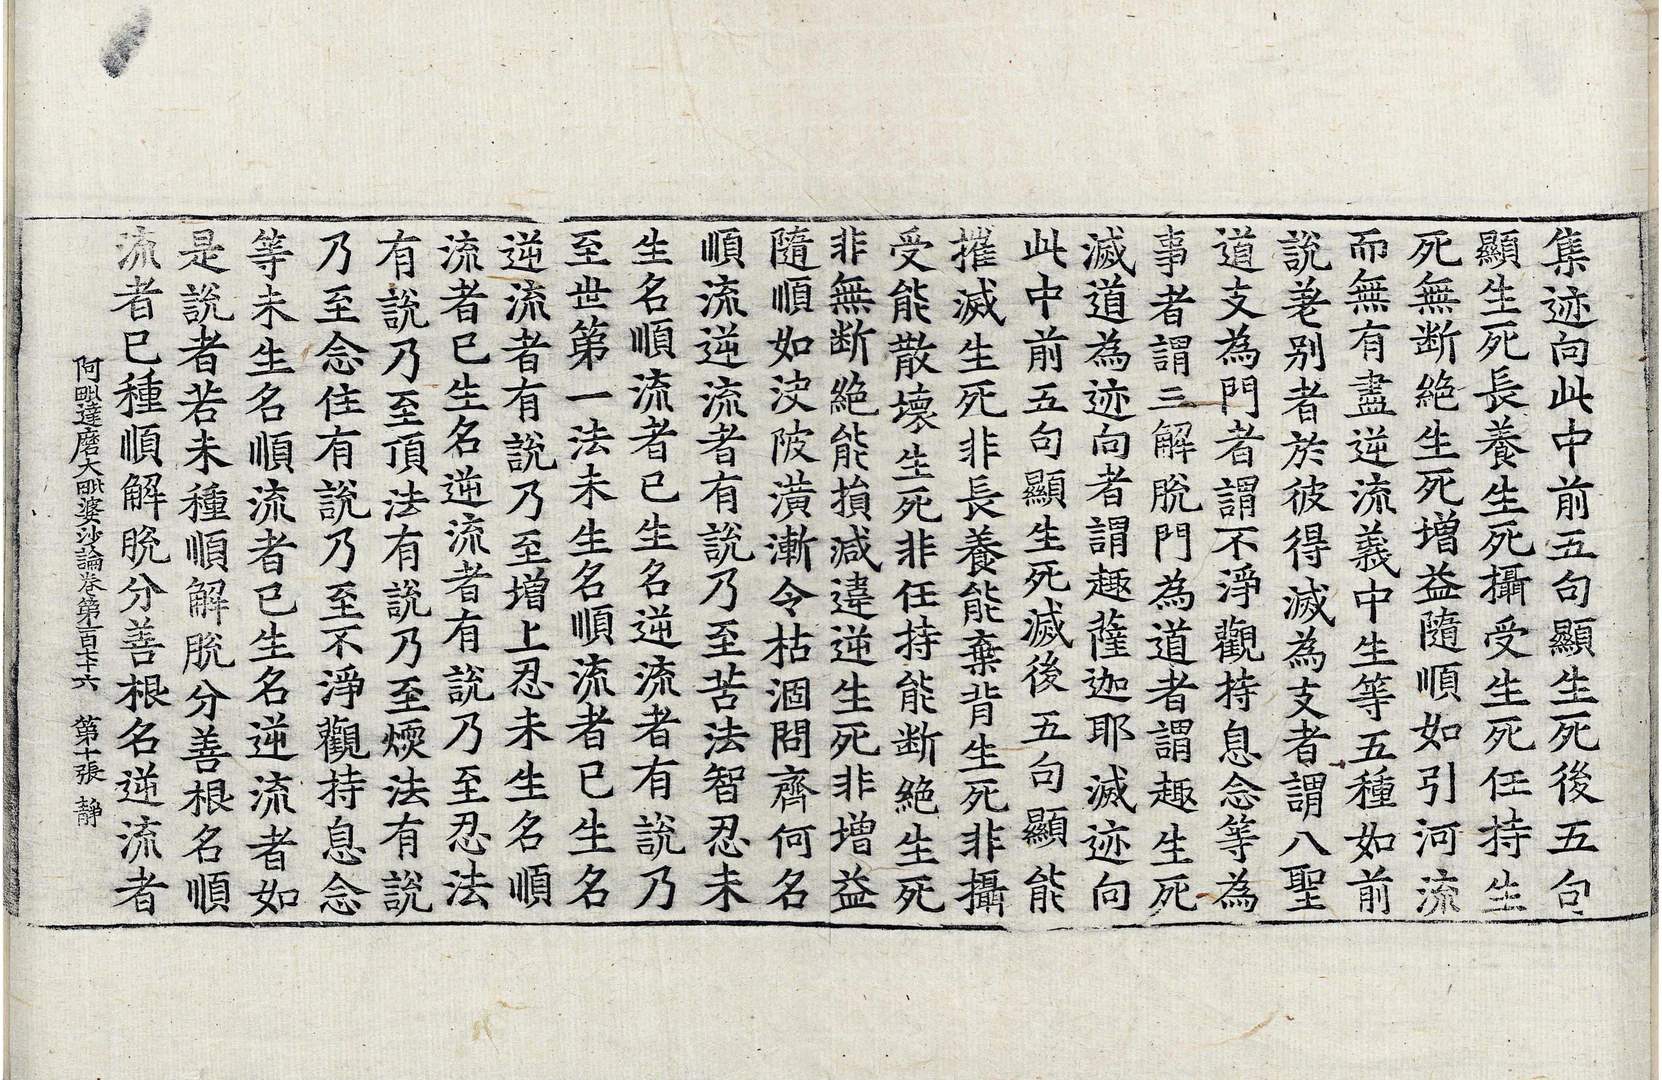 集迹向此中前五句顯生死後五句
顯生死長養生死攝受生死任持生
死無断絶生死増益隨順如引河流
而無有盡逆流義中生等五種如前
說差别者於彼得滅為支者謂八聖
道支為門者謂不淨觀持息念等為
事者謂三解脫門為道者謂趣生死
滅道為迹向者謂趣薩迦耶滅迹向
此中前五句顯生死滅後五句顯能
摧滅生死非長養能棄背生死非攝
受能散壞生死非任持能断絶生死
非無断絶能損減違逆生死非增益
隨順如決陂潢漸令枯涸問齊何名
順流逆流者有說乃至苦法智忍未
生名順流者已生名逆流者有說乃
至世第一法未生名順流者已生名
逆流者有說乃至增上忍未生名順
流者已生名逆流者有說乃至忍法
有說乃至頂法有說乃至煗法有說
乃至念住有說乃至不淨觀持息念
等未生名順流者已生名逆流者如
是說者若未種順解脫分善根名順
流者已種順解脫分善根名逆流者
阿毗達磨大毗婆沙論卷第一百七十六 第十張 靜